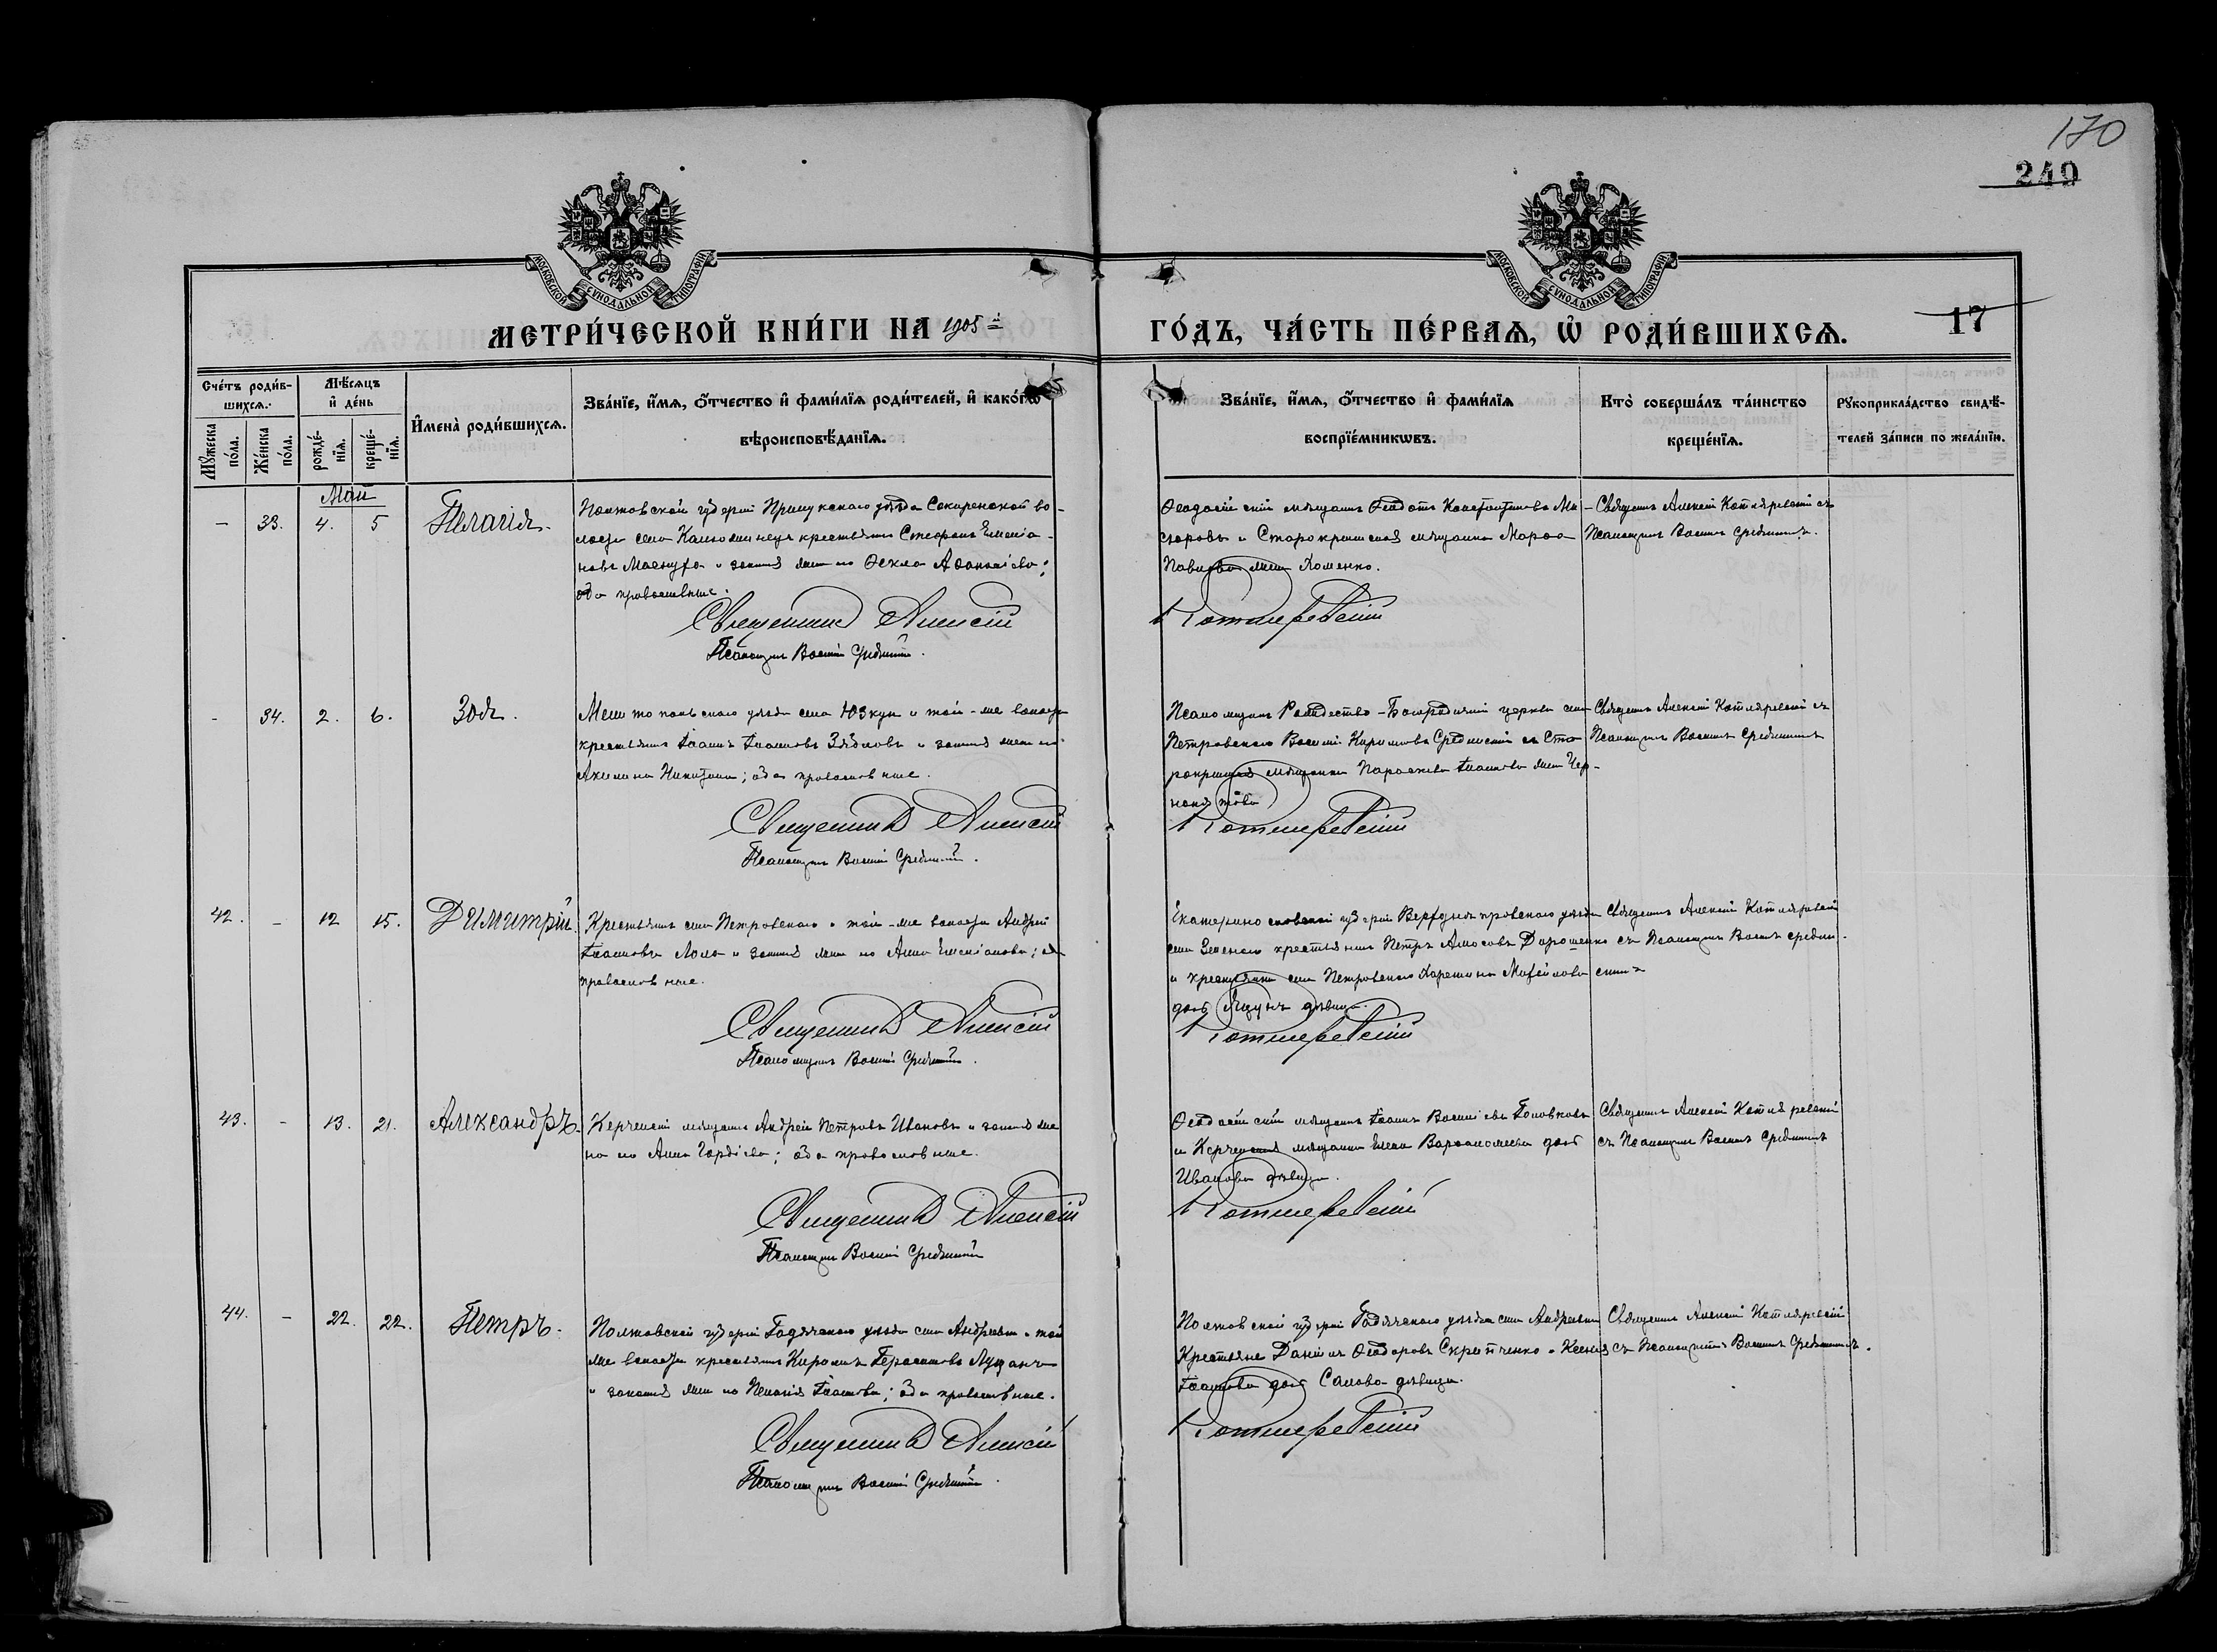 170
249
МОСКОВСКОЙ СѴНОДАЛЬНОЙ ТИПОГРАФІИ
МОСКОВСКОЙ СѴНОДАЛЬНОЙ ТИПОГРАФІИ
МЕТРИ́ЧЕСКОЙ КНИ́ГИ НА 1905 ГО́ДЪ, ЧА́СТЬ ПЕ́РВАѦ, Ѡ҆ РОДИ́ВШИХСѦ.
17
Сче́тъ роди́в-
шихсѧ.
Мѣ́сѧцъ
и҆ де́нь
Мꙋ́жеска по́ла.
Же́нска по́ла.
рожде́-
нїѧ.
креще́-
нїѧ.
И҆мена̀ роди́вшихсѧ.
Зва́нїе, и҆́мѧ, ѻ҆́тчество и҆ фами́лїѧ роди́телей, и҆ како́гѡ
вѣроисповѣ́данїѧ.
Зва́нїе, и҆́мѧ, ѻ҆́тчество и҆ фами́лїѧ
воспрїе́мникѡвъ.
Кто̀ соверша́лъ та́инство
креще́нїѧ.
Рꙋкоприкла́дство свидѣ́-
телей за́писи по жела́нїю.
Май
- 33. 4. 5 Пелагія.
Полтовской губерніи Прилукскаго уѣзда Сокиренской во-
лости села крестьянинъ Стефанъ Емелiа-
новъ и законная жена его Ѳекла Аѳанасіева;
оба православные.
Священникъ Алексій
Псаломщикъ Василій Срединскій.
Ѳеодосійскій мѣщанинъ Ѳеодотъ Константиновъ
и Старокрымская мѣщанка Марѳа
Павлова Хоменко.
Котляревскій
Священникъ Алексій Котляревскій съ
Псаломщикомъ Василіемъ Срединскимъ.
- 34. 2. 6. Зоя.
Мелитопольскаго уѣзда села Юзкуи и той-же волости
крестьянинъ Іоаннъ Іоанновъ Зябловъ и законная жена его
Акилина Никитина; оба православные.
Священникъ Алексій
Псаломщикъ Василій Срединскій.
Псаломщикъ Рождество-Богородичной церкви села
Петровскаго Василій Кириловъ Срединскій и Ста-
рокрымская мѣщанка Параскева Іоаннова жена Чер-
Котляревскій
Священникъ Алексій Котляревскій съ
Псаломщикомъ Василіемъ Срединскимъ
42. - 12 15. Димитрій.
Крестьянинъ села Петровскаго и той-же волости Андрей
Іоанновъ и законная жена его Анна Емеліанова; оба
православные.
Священникъ Алексій
Псаломщикъ Василій Срединскій.
Екатеринославской губерніи Верхнеднѣпровскаго уѣзда
села Зеленаго крестьянинъ Петръ Амосовъ Дорошенко
и крестьянка села Петровскаго
дочь дѣвица.
Котляревскій
Священникъ Алексій Котляревскій
съ Псаломщикомъ Василіемъ Средин-
скимъ
43. - 13. 21. Александръ.
Керченскій мѣщанинъ Андрей Петровъ Ивановъ и законная же-
на его Анна Гордѣева; оба православные.
Священникъ Алексій
Псаломщикъ Василій Срединскій
Ѳеодосійскій мѣщанинъ Іоаннъ Василіевъ Головковъ
и Керченская мѣщанка Елена Варѳоломеева дочь
Иванова дѣвица.
Котляревскій
Священникъ Алексій Котляревскій
съ Псаломщикомъ Василіемъ Срединскимъ
44. - 22. 22. Петръ.
Полтовской губерніи Гадячскаго уѣзда села Андреевки и той
же волости крестьянинъ Кирилъ Герасимовъ
и законная жена его Пелагія Іоаннова; оба православные.
Священникъ Алексій
Псаломщикъ Василій Срединскій.
Полтовской губерніи Гадячскаго уѣзда села Андреевки
Крестьяне Даніилъ Ѳеодоровъ Скрипченко и Ксенія
Іоаннова дочь Салова дѣвица.
Котляревскій
Священникъ Алексій Котляревскій
съ Псаломщикомъ Василіемъ Срединскимъ.